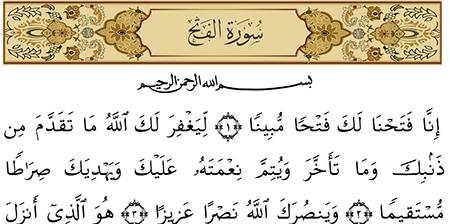 سُورَةُ الفَتْحِ
بسم الله الرحمن الرحيم
إِنَّا فَتَحْنَا لَكَ فَتْحًا مُّبِينًا ﴿١﴾ لِّيَغْفِرَ لَكَ اللَّهُ مَا تَقَدَّمَ مِن
ذَنۢبِكَ وَمَا تَأَخَّرَ وَيُتِمَّ نِعْمَتَهُۥ عَلَيْكَ وَيَهْدِيَكَ صِرَٰطًا
مُّسْتَقِيمًا ﴿٢﴾ وَيَنصُرَكَ اللَّهُ نَصْرًا عَزِيزًا ﴿٣﴾ هُوَ الَّذِىٓ أَنزَلَ